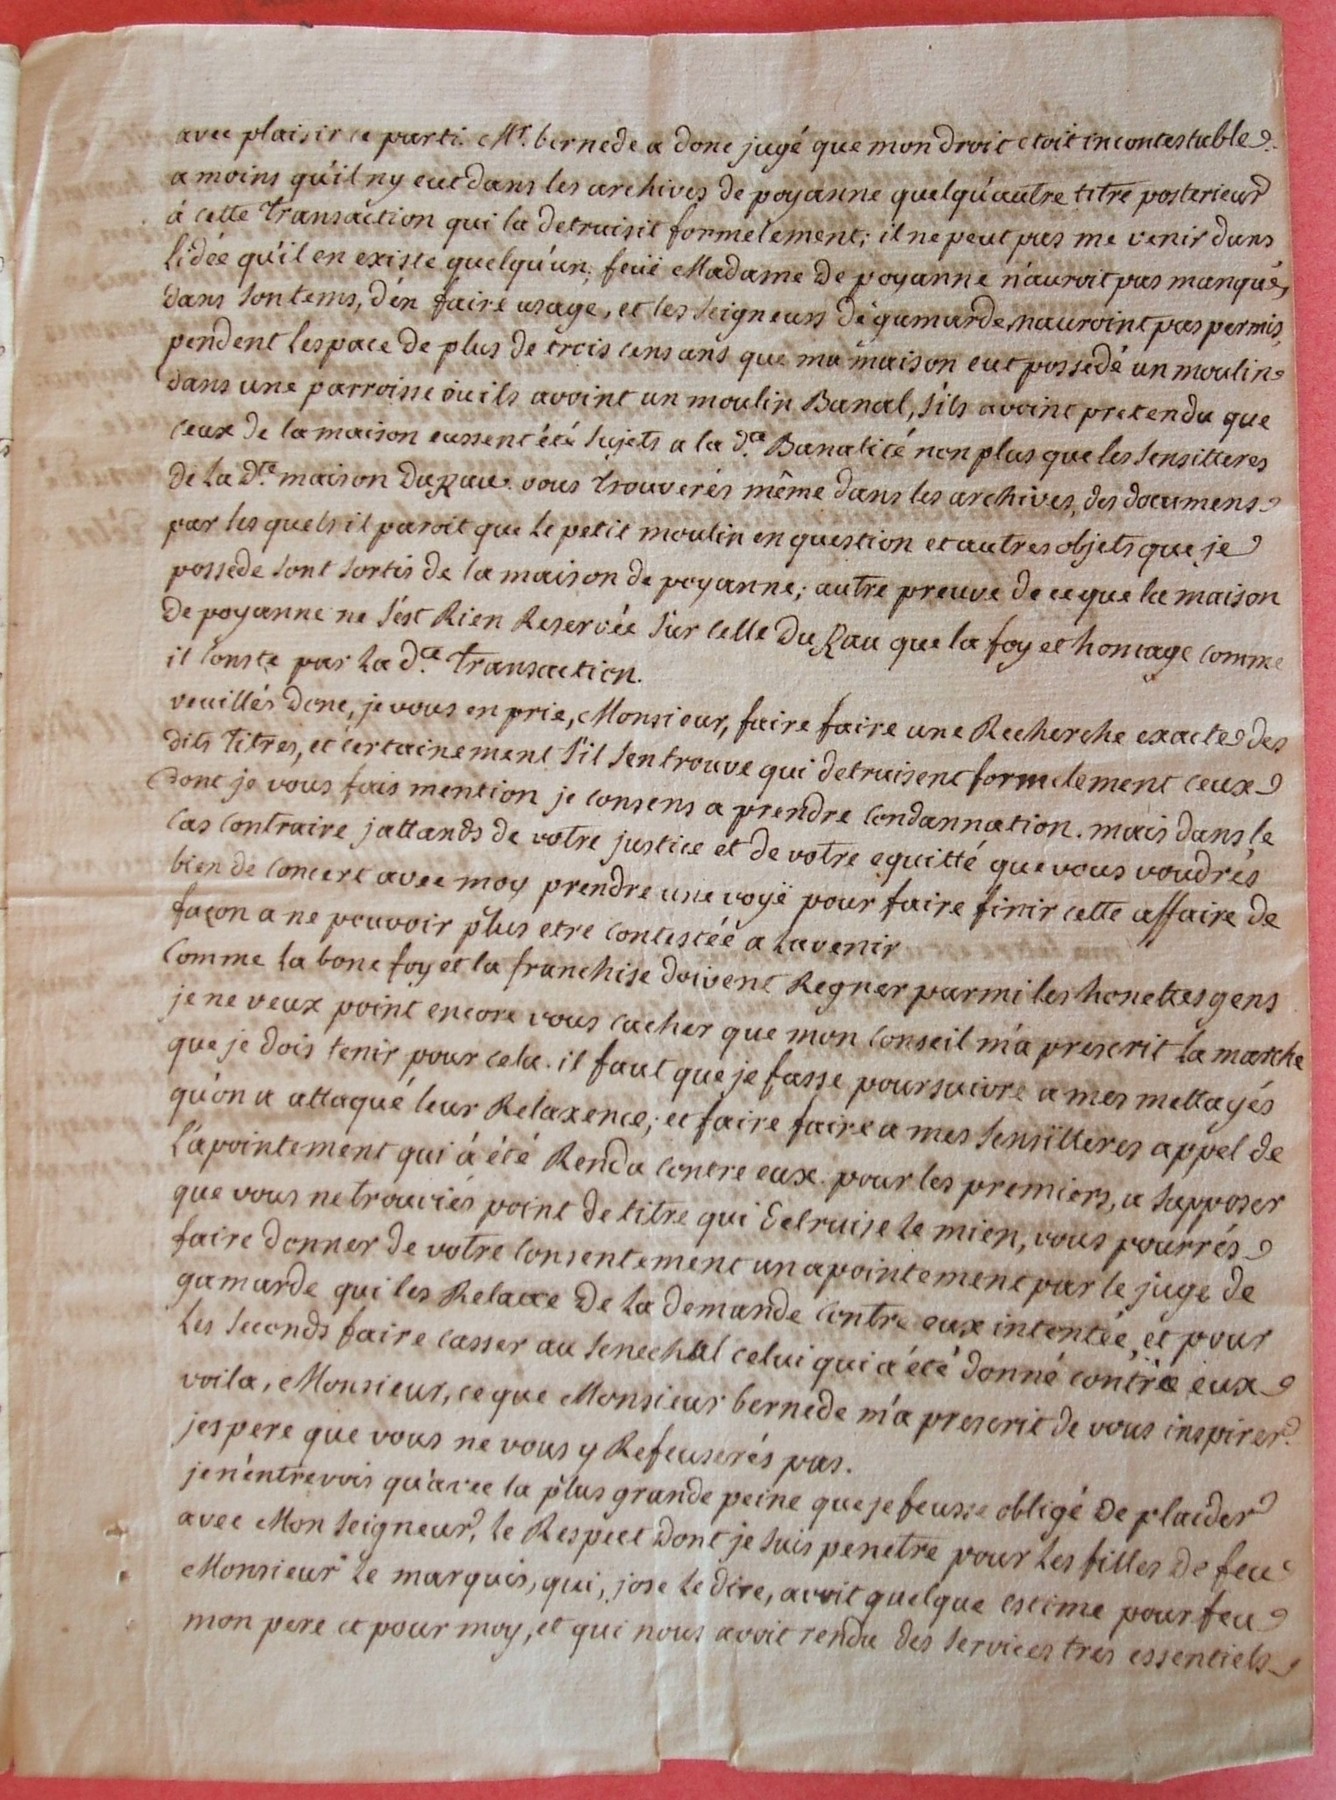 avec plaisir ce parti. Mr. bernede a donc jugé que mon droit etoit incontestable.
a moins qu'il ny eut dans les archives de poyanne quelqu'autre titre posterieur
à cette transaction qui la detruisit formélement; il ne peut pas me venir dans
l'idée qu'il en existe quelqu'un, feüe Madame de poyanne n'auroit pas manqué,
dans son tems, d'en faire usage, et les seigneurs de gamarde, nauroint pas permis,
pendent lespace de plus de trois cens ans que ma maison eut possedé un moulin
dans une parroisse ou ils avoint un moulin Banal, s'ils avoint pretendu que
ceux de la maison eussent été sujets a la d.ce Banalité non plus que les sensitteres
de la d.te maison du Rau. vous trouverés même dans les archives, des documens
par lesquels il paroit que le petit moulin en question et autres objets que je
possede sont sortis de la maison de poyanne; autre preuve de ce que la maison
de poyanne ne s'est Rien Reservée sur celle du Rau que la foy et homage comme
il conste par la d.ce transaction.
veuillés donc, je vous en prie, Monsieur, faire faire une Recherche exacte des
dits titres, et certainement s'il sen trouve qui detruisent formelement ceux
dont je vous fais mention je consens a prendre condannation. mais dans le
cas contraire jattands de votre justice et de votre equitté que vous voudrés
bien de concert avec moy prendre une voyë pour faire finir cette affaire de
façon a ne pouvoir plus etre contestée a lavenir
Comme la bone foy et la franchise doivent Regner parmi les honettes gens
je ne veux point encore vous cacher que mon conseil m'a prescrit la marche
que je dois tenir pour cela. il faut que je fasse poursuivre a mes mettayés
qu'on a attaqué leur Relaxence; et faire faire a mes sensitteres appel de
l'apointement qui à été Rendu contre eux. pour les premiers, a supposer
que vous ne trouviés point de titre qui detruise le mien, vous pourrés
faire donner de votre consentement un apointement par le juge de
gamarde qui les Relaxe de la demande contre eux intentée, et pour
les seconds faire casser au senechal celui qui a été donné contre eux
voila, Monsieur, ce que Monsieur bernede m'a prescrit de vous inspirer.
jespere que vous ne vous y Refeuserés pas.
je n'entrevois qu'avec la plus grande peine que je feusse obligé de plaider
avec Mon seigneur, le Respect dont je suis penetré pour les filles de feu
Monsieur le marquis, qui, jose le dire, avoit quelque estime pour feu
mon pere et pour moy, et qui nous avoit rendu des services tres essentiels